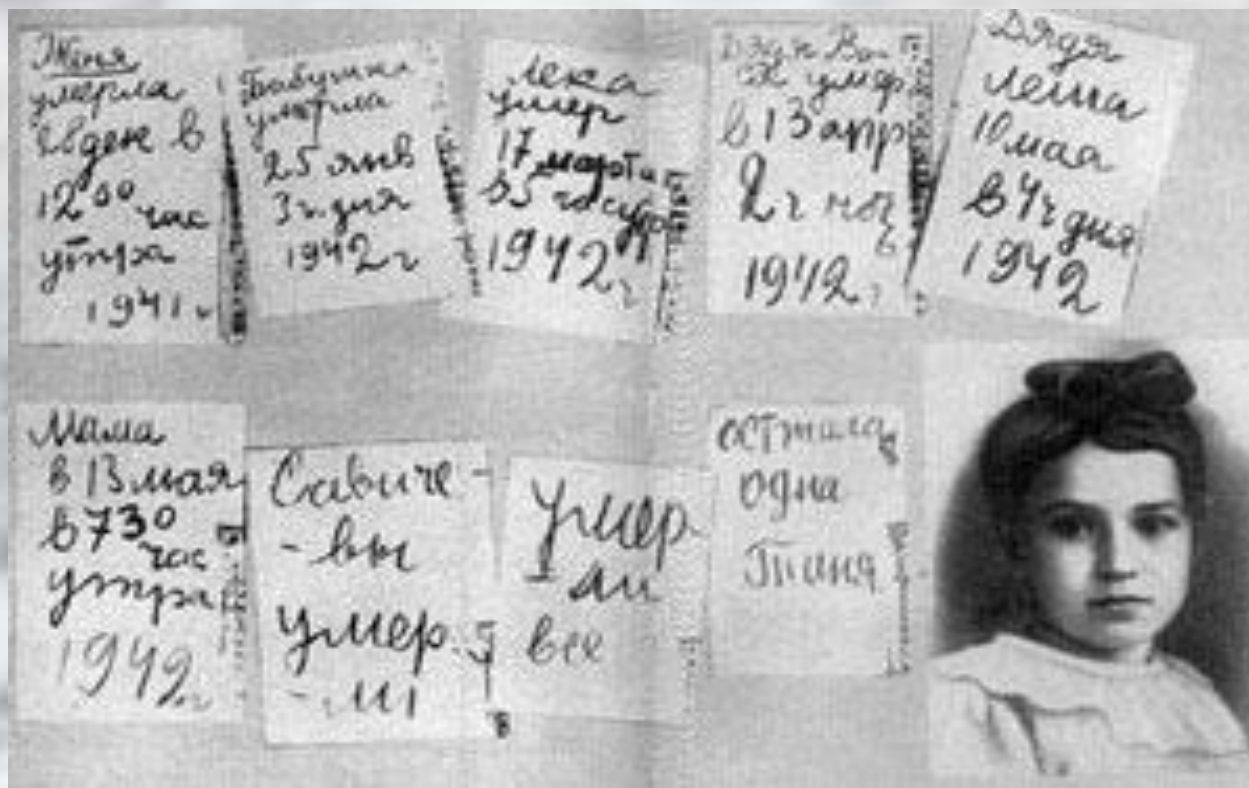 Женя
умерла
28 дек в
12 00 час
утра
1941 г
Бабушка
умерла
25 янв
3 ч. дня
1942 г
Лека
умер
17 марта
в 5 час утра
1942 г
Дядя Ва
ся умер
в 13 апр
2 ч ноч
1942 г
Дядя
Леша
10 мая
в 4 ч дня
1942
Мама
в 13 мая
в 7 30
час
утра
1942 г
Савиче-
-вы
умер-
-ли
Умер-
-ли
все
Осталась
одна
Таня